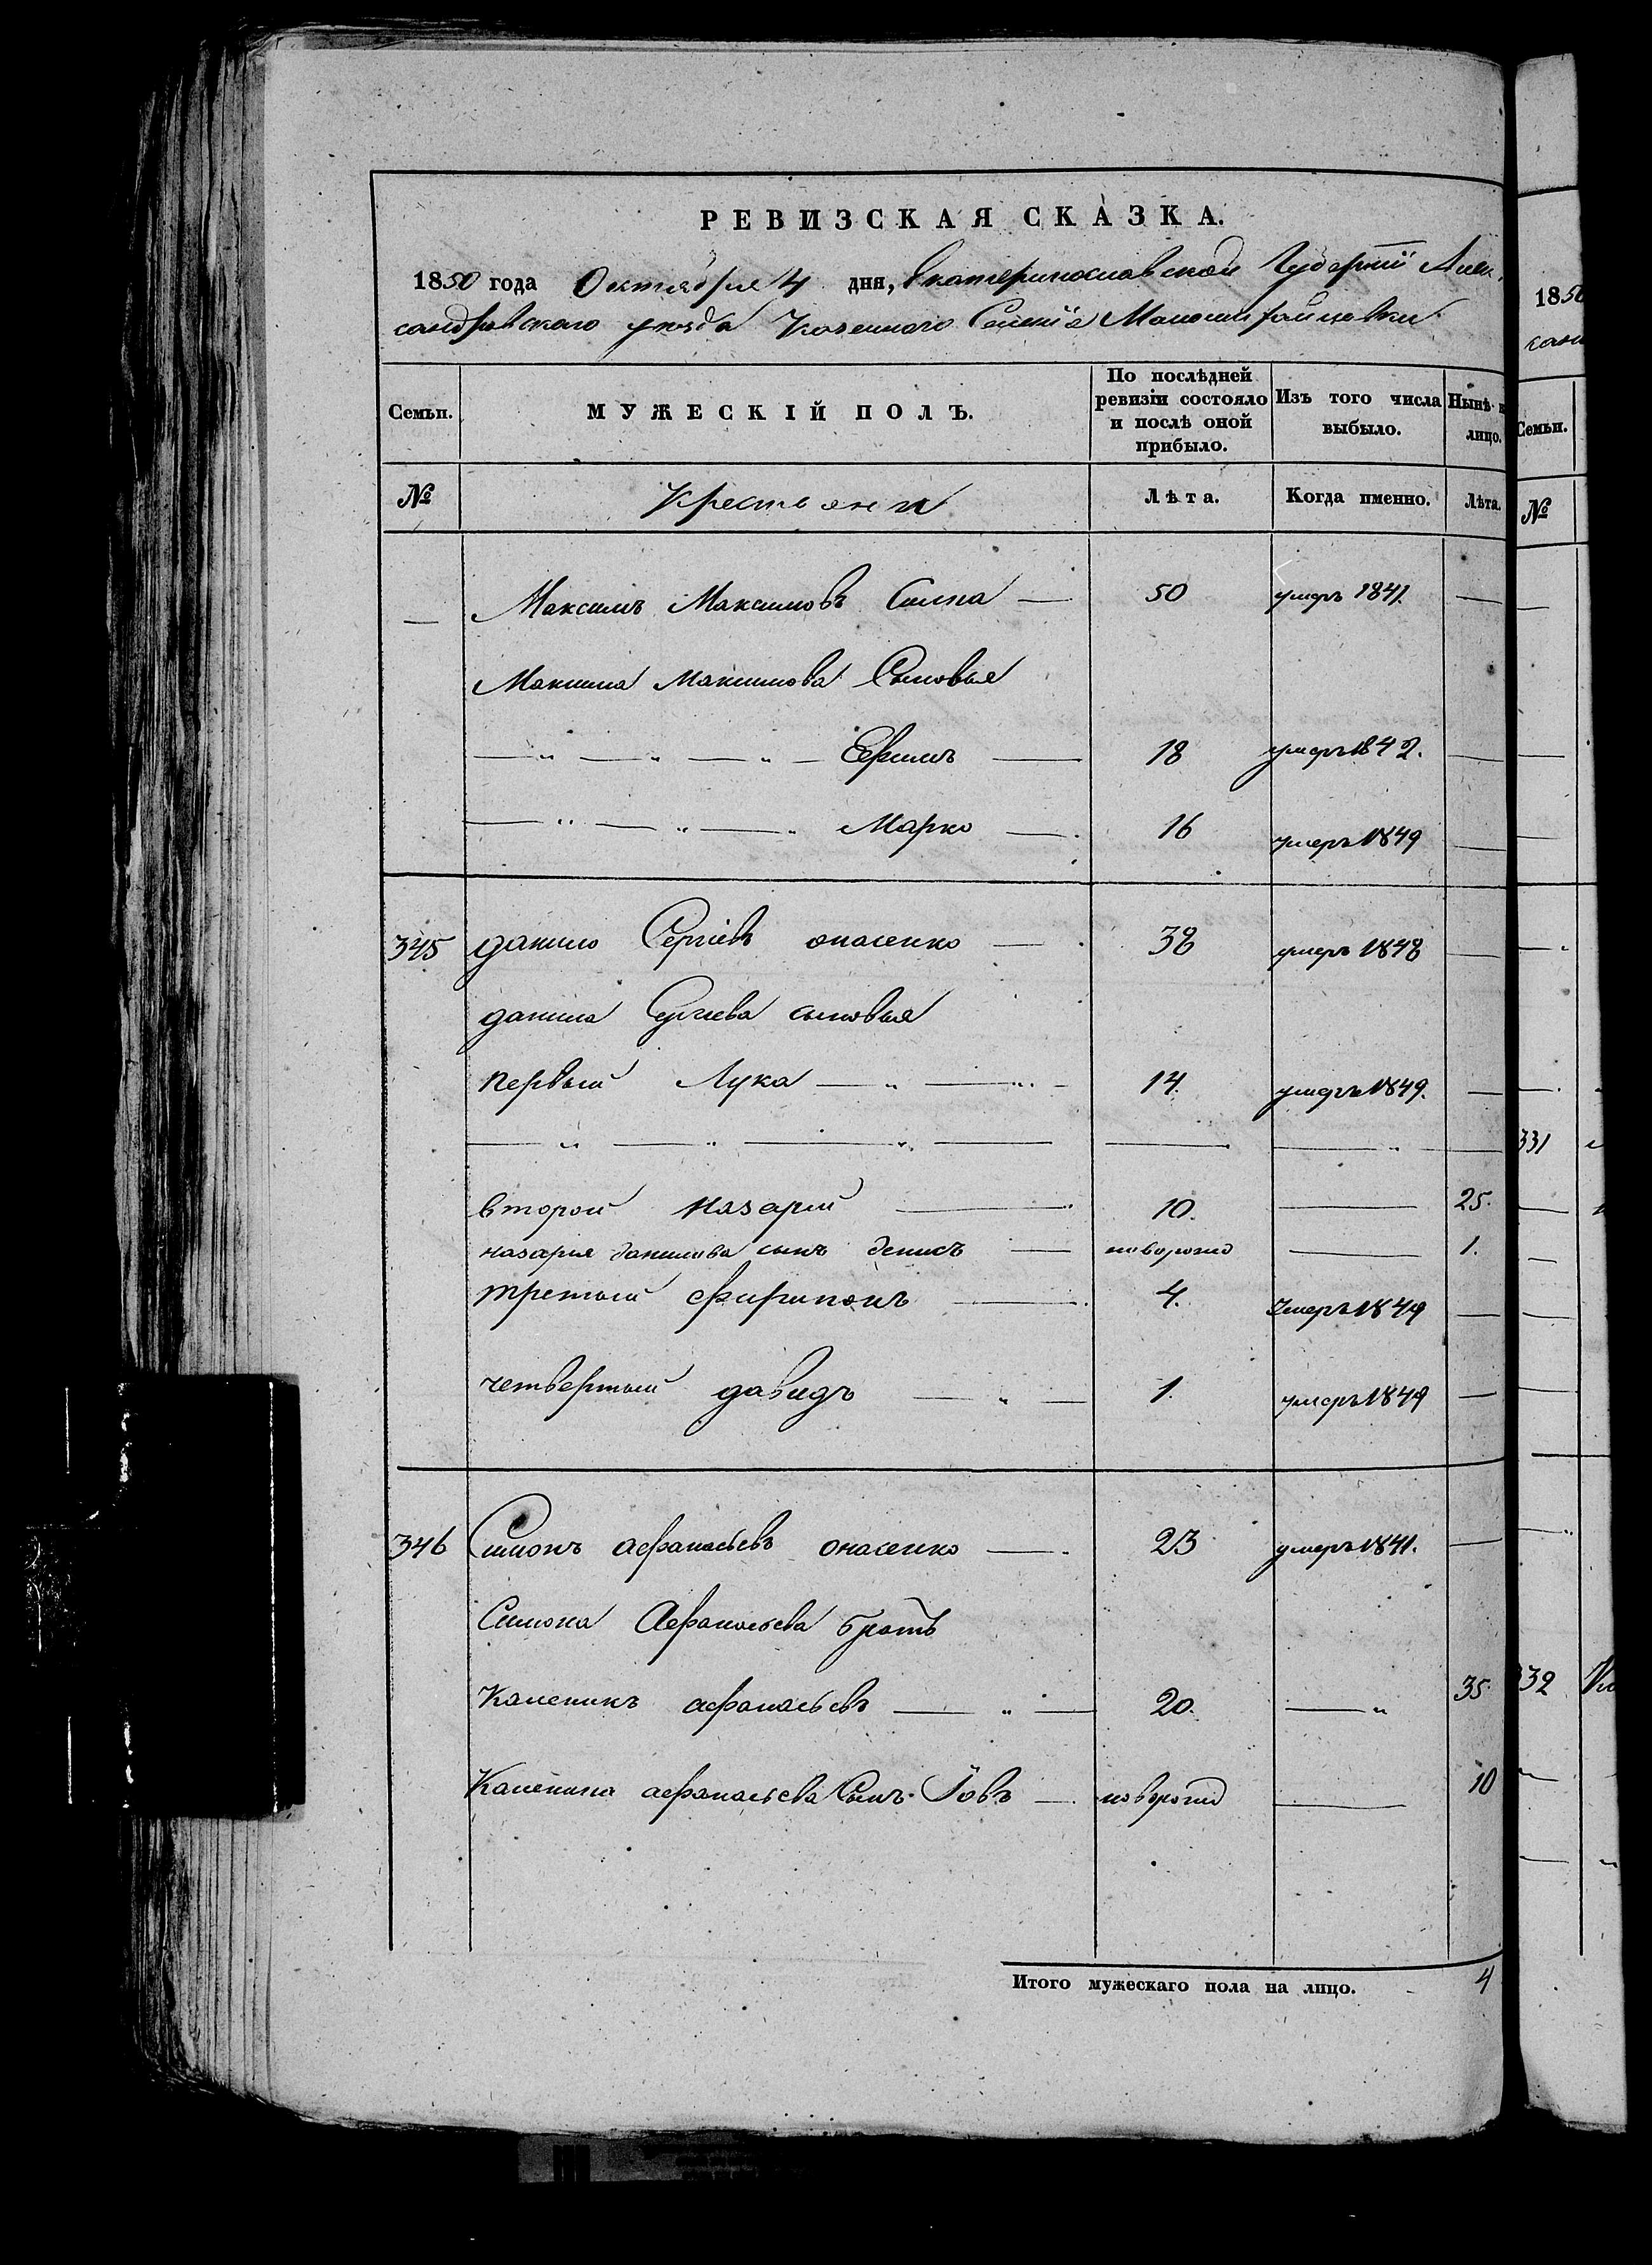 РЕВИЗСКАЯ СКАЗКА.
1850 года Октября 4 дня, Екатеринославской Губерніи Алек-
сандровскаго уезда Казеннаго Селенія
Семьи. МУЖЕСКІЙ ПОЛЪ. По послѣдней ревизіи состояло и послѣ оной прибыло. Изъ того числа выбыло. Нынѣ на лицо.
№ Крестьяни Лѣта. Когда именно. Лѣта.
— Максимъ Максимовъ — 50 умеръ 1841. —
Максима Максимова Сыновья
— " — " — " — Ефимъ — 18 умеръ 1842. —
— " — " — " Марко — 16 умеръ 1849 —
345 данило Сергіевъ опасенко — 38 умеръ 1848 —
данила Сергіева сыновья
первый Лука — " — " — 14. умеръ 1849. —
— " — " — " — — — " — —
второй назарій — 10. — 25.
назарія данилова сынъ денисъ — новорожд — 1.
третий — 4. Умеръ 1849 —
четвертый давидъ — " — 1. умеръ 1849 —
346 Симонъ афанасьевъ опасенко — 23 умеръ 1841. —
Симона Афанасьева братъ
Каленикъ афанасьевъ — " — 20. — " 35
Каленика афанасьева Сынъ Іовъ — новорожд — 10
Итого мужескаго пола на лицо. 4
1850
сан
Семьи.
№
331
332